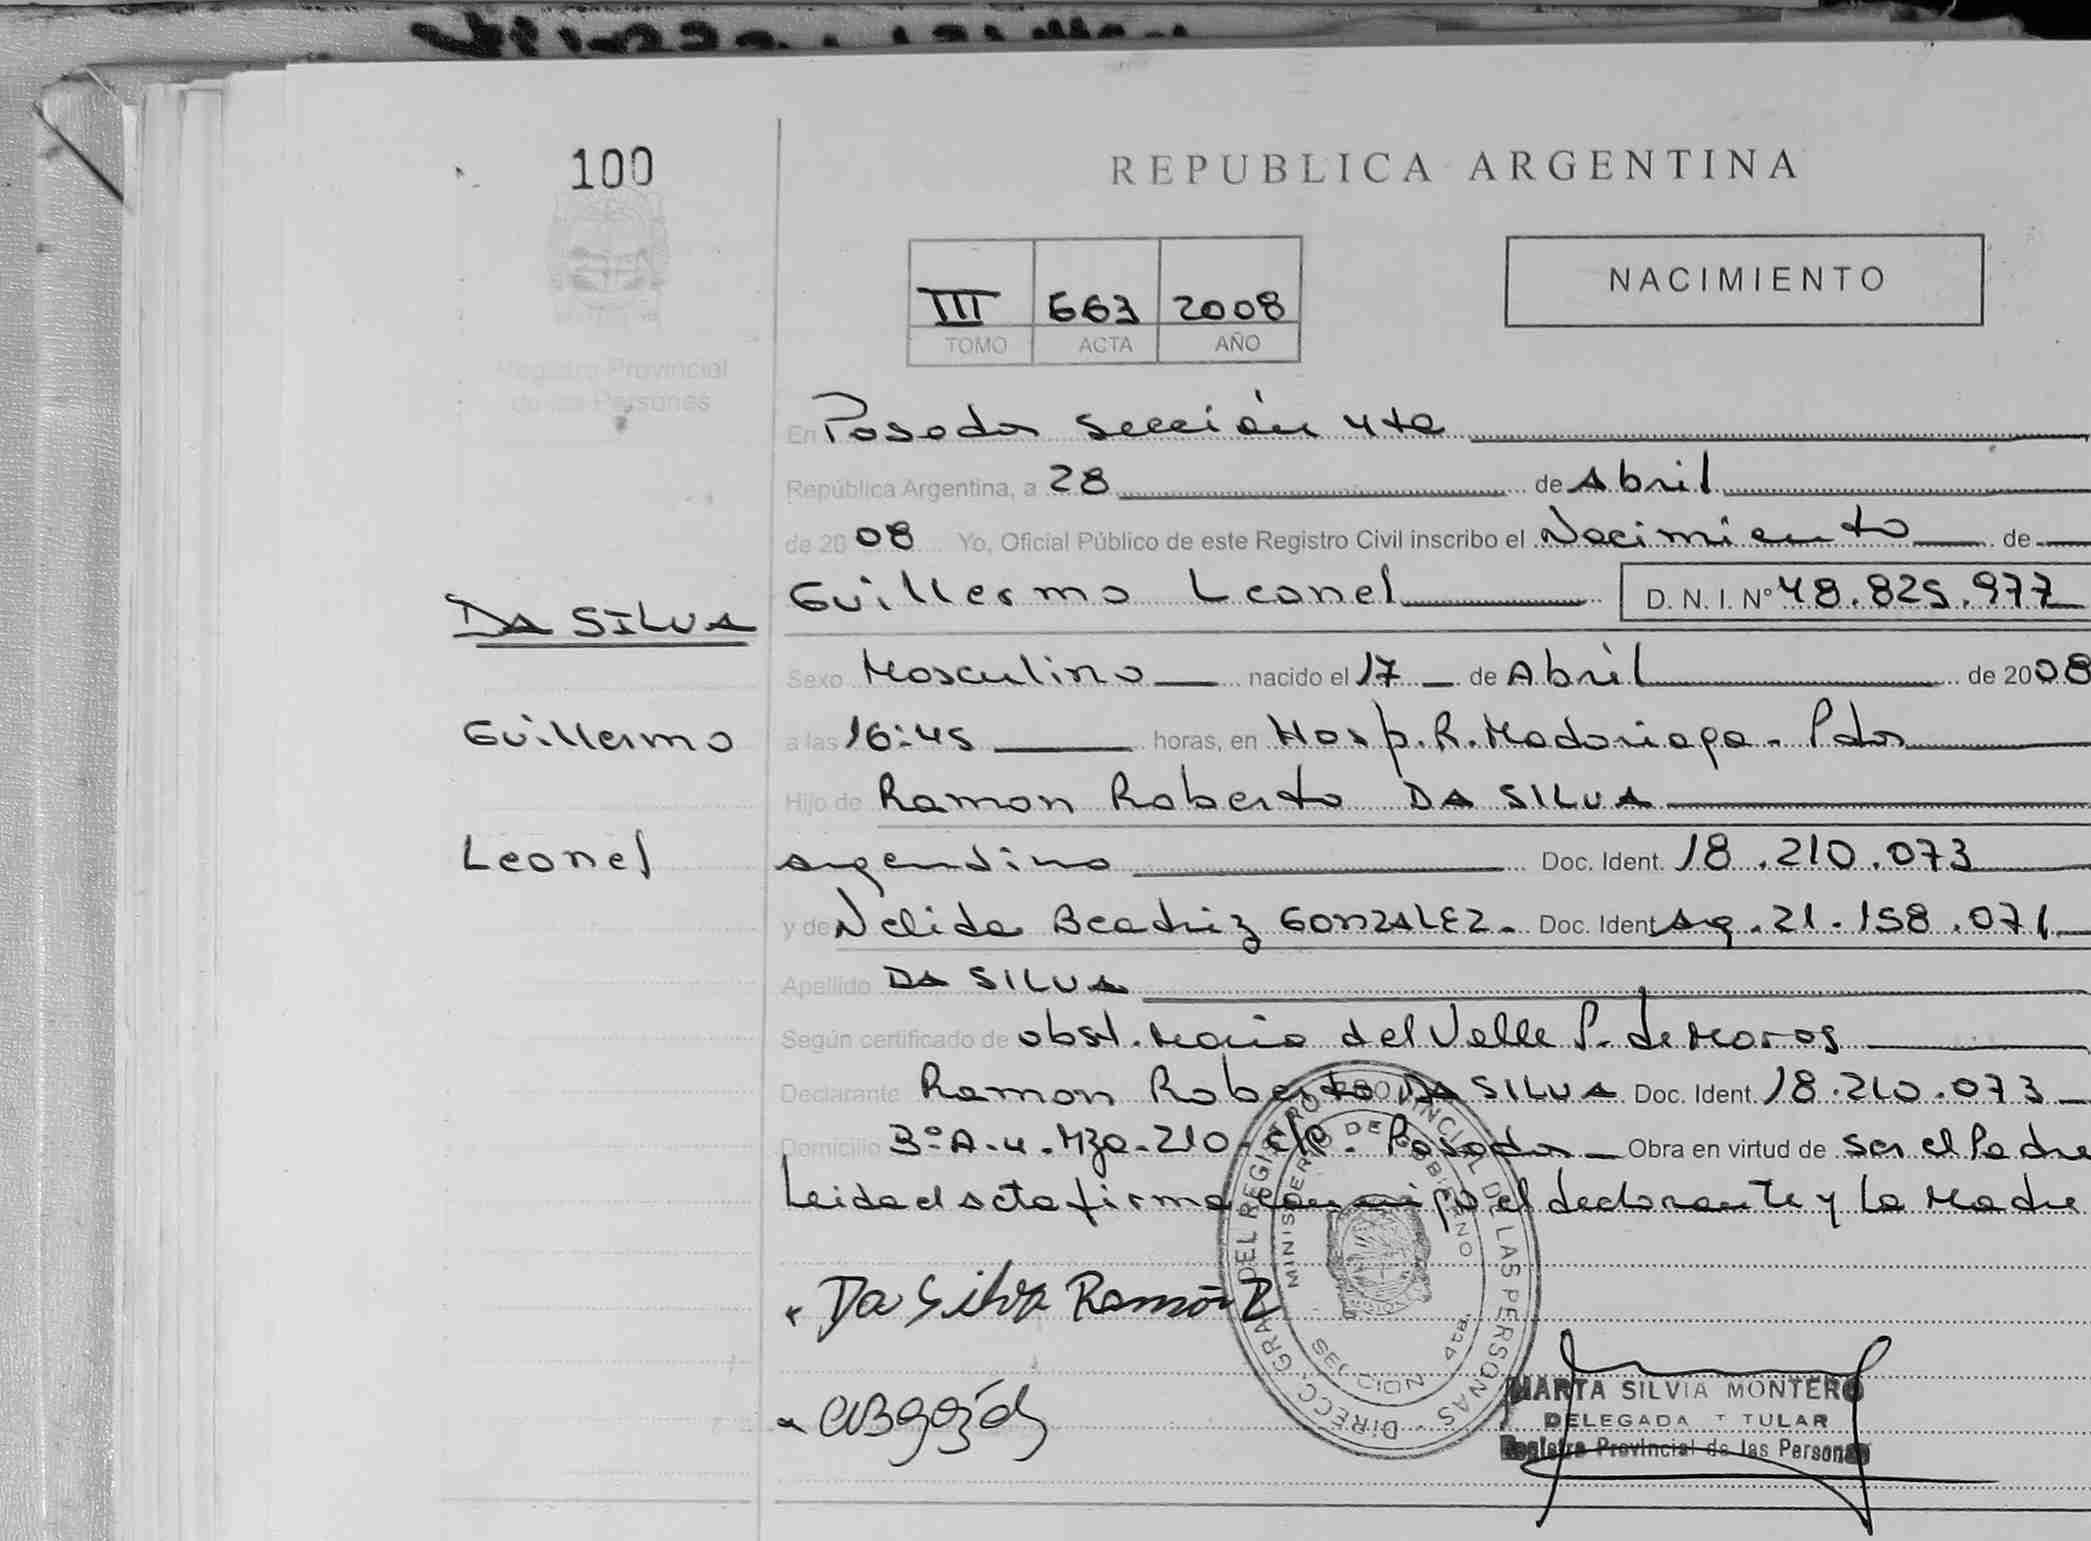 100
REPUBLICA ARGENTINA
NACIMIENTO
III 663 2008
TOMO ACTA AÑO
Registro Provincial
de las Personas
En Posadas sección 4ta
República Argentina, a 28 de Abril
de 2008 Yo, Oficial Público de este Registro Civil inscribo el Nacimiento de
DA SILVA
Guillermo Leonel D. N. I. Nº 48.825.977
Sexo Masculino nacido el 17 de Abril de 2008
Guillermo
a las 16:45 horas, en Hosp. R. Madariaga - Pdas
Hijo de Ramon Roberto DA SILVA
Leonel
argentino Doc. Ident. 18.210.073
y de Nelida Beatriz GONZALEZ - Doc. Ident Arg. 21.158.071
Apellido DA SILVA
Según certificado de obst. Maria del Valle P. de Maros
Declarante Ramon Roberto DA SILVA Doc. Ident. 18.210.073
Domicilio Bº A-4. Mza-210- c/P. Posadas Obra en virtud de ser el Padre
Leida el acta firma conmigo el declarante y la Madre
Da Silva Ramón R
DIRECC. GRAL. DEL REGISTRO PROVINCIAL DE LAS PERSONAS
MINISTERIO DE GOBIERNO
SECCION 4ta.
MARTA SILVIA MONTERO
DELEGADA TITULAR
Registro Provincial de las Personas